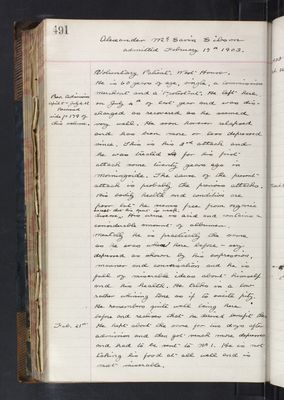 491
Alexander McGavin Gibson
admitted February 19th 1903.
Voluntary Patient. West House.
He is 60 years of age, single, a commission
merchant and a Protestant. He left here
on July 4th of last year and was dis-
charged as recovered as he seemed
very well. He soon however relapsed
and has been more or less depressed
since. This is his 3rd attack and
he was treated for his first
attack some twenty years ago in
Morningside. The cause of the present
attack is probably the previous attacks.
His bodily health and condition are
poor but he seems free from organic
disease, his urine is acid and contains a
considerable amount of albumen.
Mentally he is practically the same
as he was when here before - very
depressed as shown by his
manner and conversation and he is
full of miserable ideas about himself
and his health. He talks in a low
rather whining tone as if to excite pity.
He remembers quite well being here
before and realises that he
Feb. 21st
He kept about the same for two days after
admission and then got much more depressed
and had to be sent to No 1. He is not
taking his food at all well and is
most miserable.
Prev. Admission
Previous
vide p. 179 of
this volume.